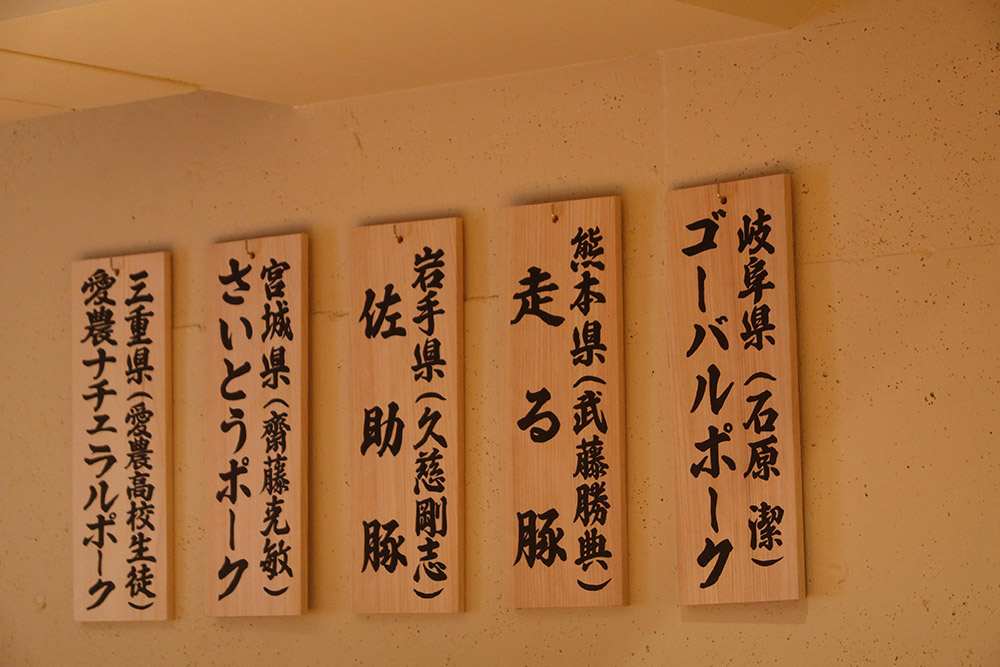 岐阜県(石原 潔)
ゴーバルポーク
熊本県(武藤勝典)
走る豚
岩手県(久慈剛志)
佐助豚
宮城県(齋藤克敏)
さいとうポーク
三重県(愛農高校生徒)
愛農ナチェラルポーク